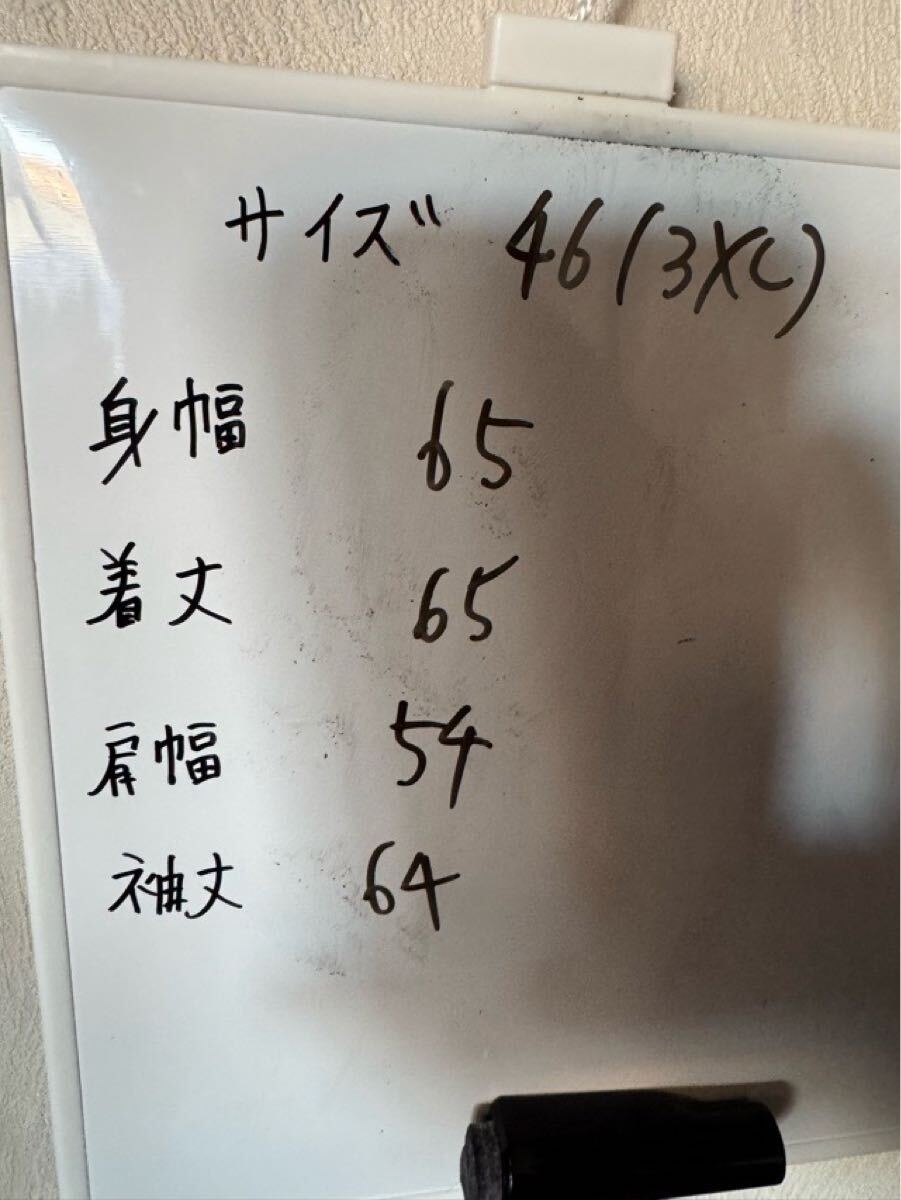 サイズ 46(3XL)
身幅 65
着丈 65
肩幅 54
袖丈 64